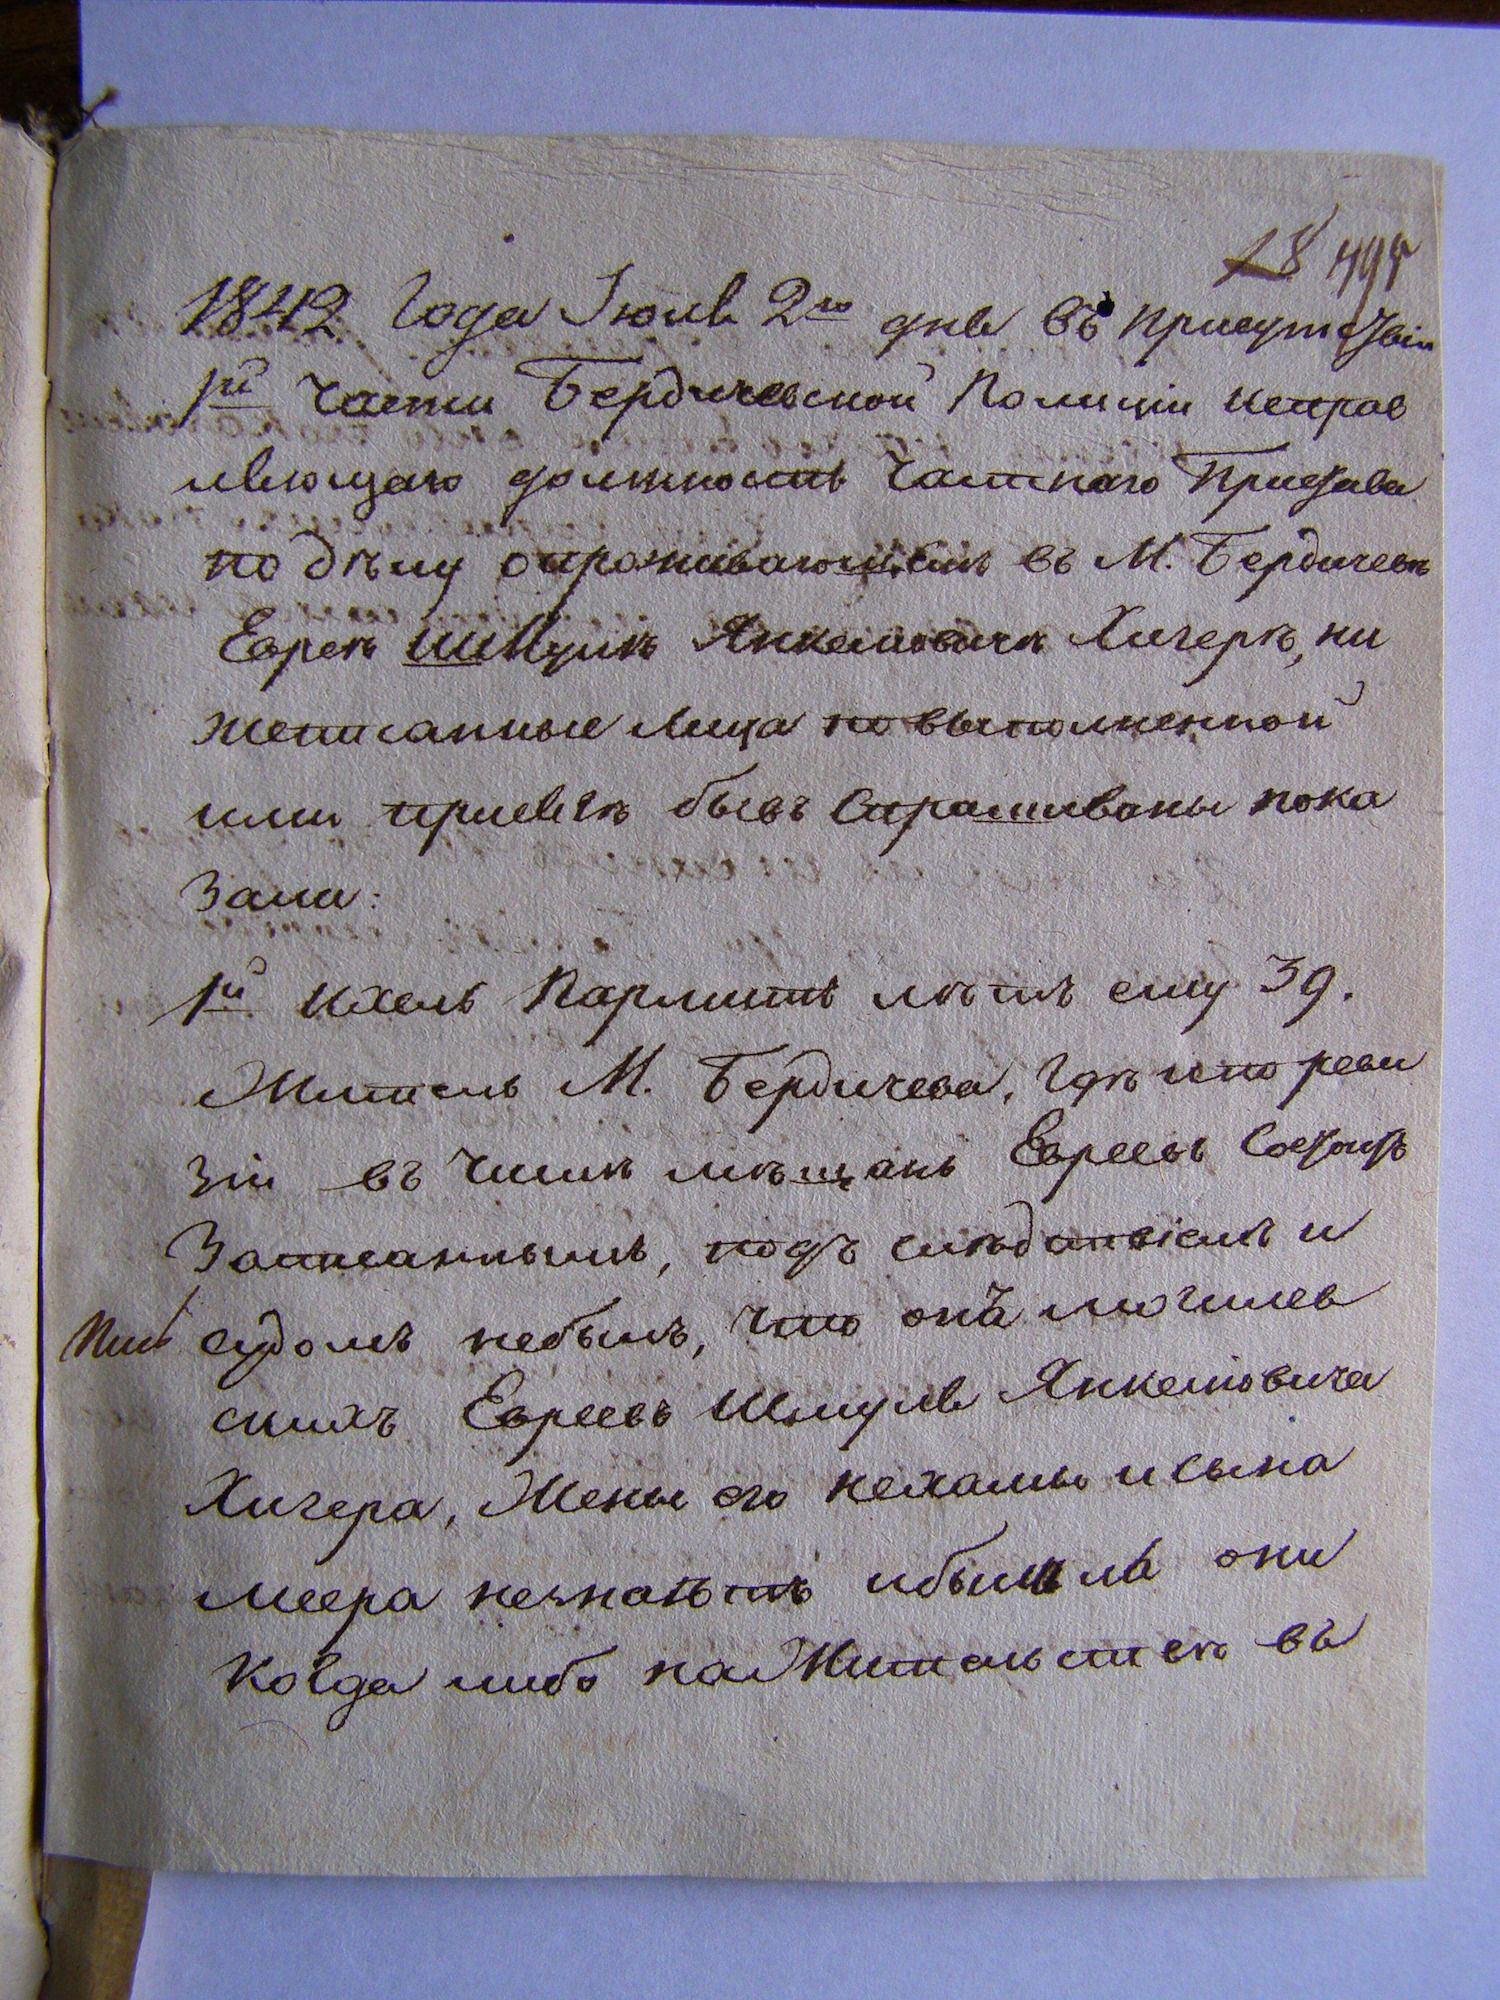 18 495
1842 Года Июля 2го дня въ присутствіи
1й части Бердичевской Полиціи исправ
ляющаго должность Частнаго Пристава
по дѣлу опроживающемъ въ М. Бердичевѣ
Евреѣ Шмулѣ Янкелювичѣ Хигерѣ, ни
жеписанные лица по выполненной
ими присягѣ бывъ спрашиваны пока
зали:
1й Ихель Пармитъ лѣтъ ему 39.
Житель М. Бердичева, гдѣ ипо реви
зіи въ числѣ мѣщанъ Евреевъ состоитъ
Записаннымъ, подъ слѣдствіемъ и
судомъ небылъ, что онъ могилев
скихъ Евреевъ Шмуля Янкелювича
Хигера, Жены его Нехамы исына
Меера незнаетъ ибыли ли они
Когда либо на Жительствѣ въ